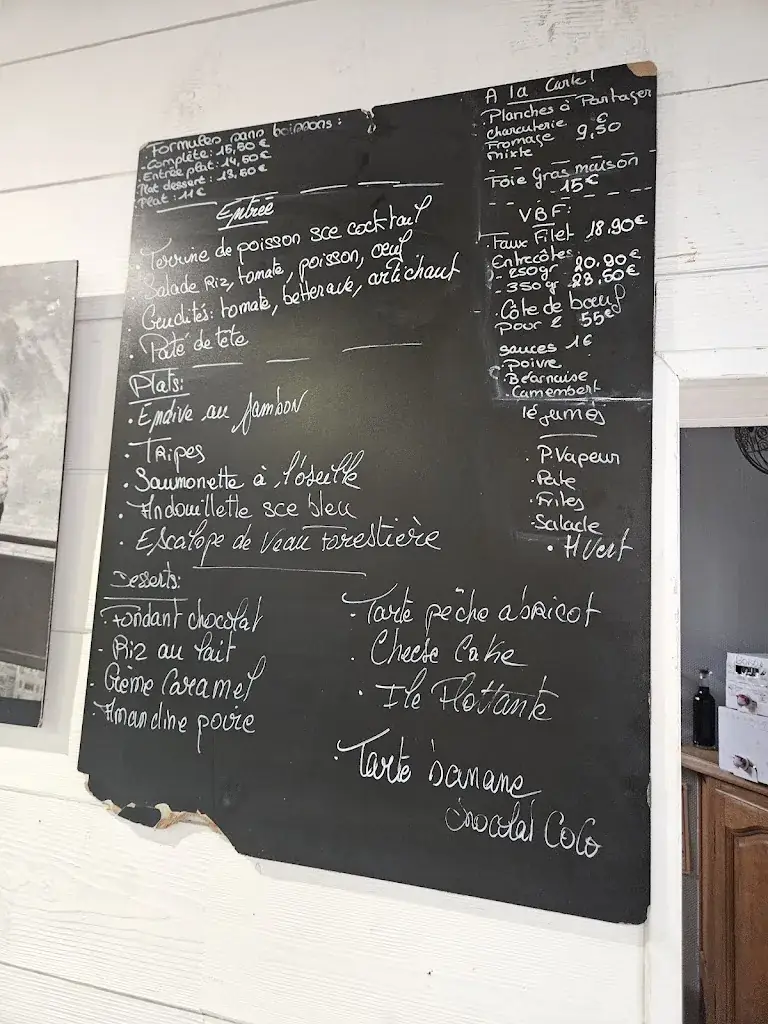 Formules sans boissons :
- Complète : 15,50 €
- Entrée plat : 14,50 €
Plat dessert : 13,50 €
Plat : 11 €
Entrée
. Terrine de poisson sce cocktail
. Salade Riz, tomate, poisson, oeuf
. Crudités: tomate, betterave, artichaut
. Paté de tete
Plats:
. Endive au Jambon
. Tripes
. Saumonette à l'oseille
. Andouillette sce bleu
. Escalope de Veau Forestière
Desserts:
. Fondant chocolat
- Riz au lait
- Crème Caramel
- Amandine poire
. Tarte pêche abricot
. Cheese Cake
. Ile Flottante
. Tarte banane
chocolat CoCo
A la Carte !
Planches à Partager
charcuterie €
Fromage 9,50
mixte
Foie Gras maison
15 €
VBF:
. Faux Filet 18.90€
Entrecôtes
- 250gr 20.90€
- 350gr 28,50€
. Côte de boeuf
pour 2 55€
sauces 1€
. Poivre
. Béarnaise
. Camembert
légumes
. P.Vapeur
. Pate
. Frites
. Salade
. H Vert